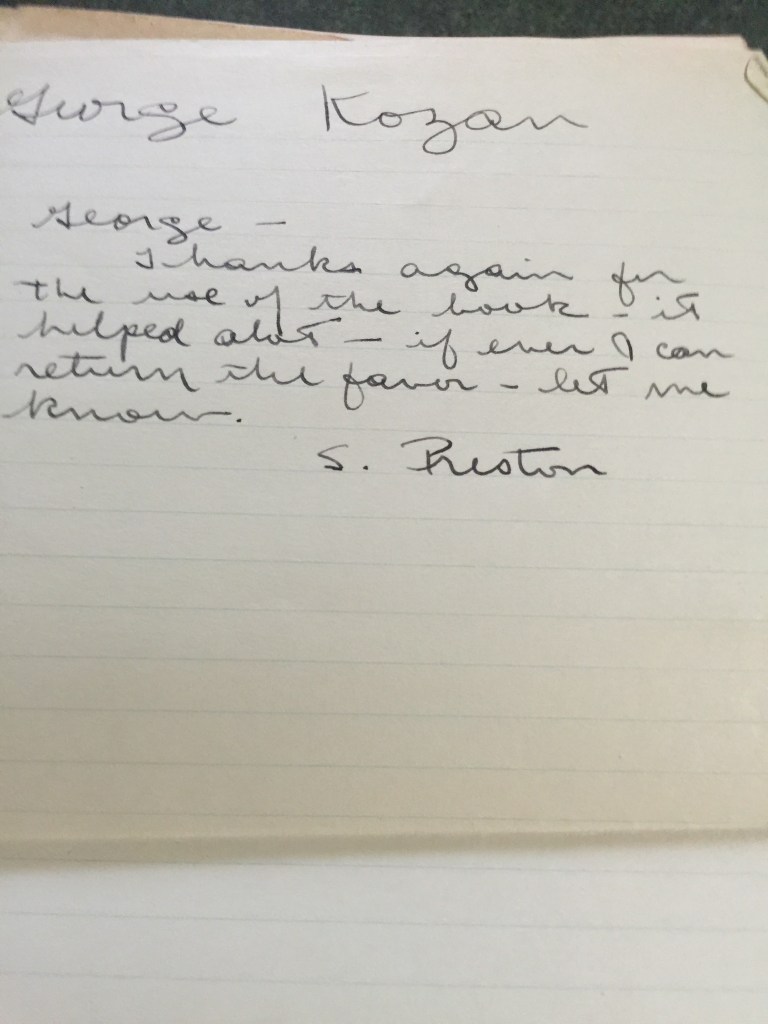 George Kozan
George -
Thanks again for
the use of the book - it
helped alot - if ever I can
return the favor - let me
know.
S. Preston